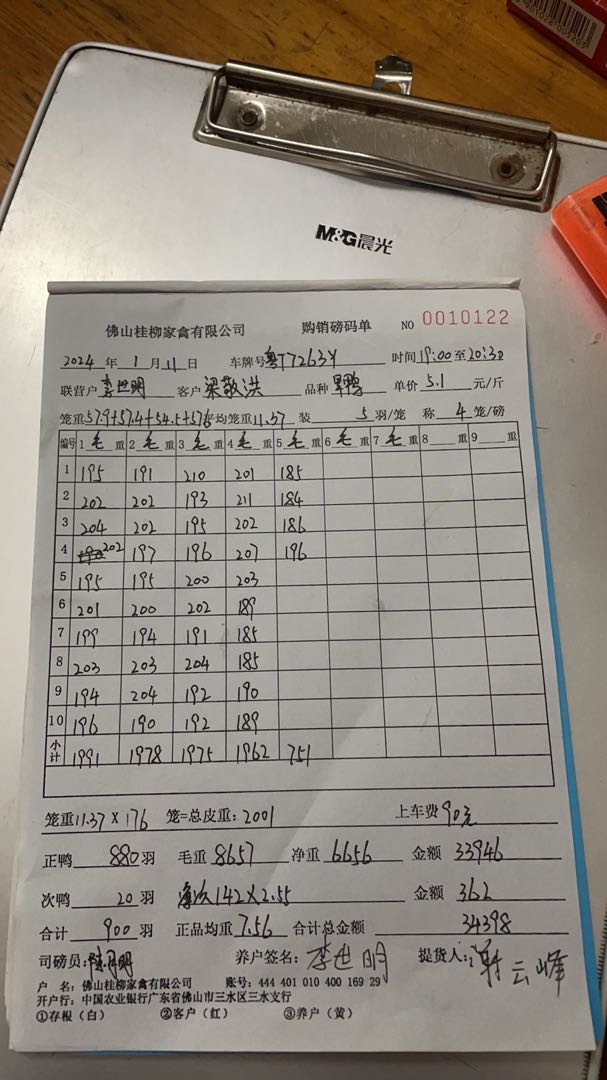 M&G晨光
佛山桂柳家禽有限公司 购销磅码单 NO 0010122
2024 年 1 月 11 日 车牌号 粤T7263Y 时间 19:00 至 20:30
联营户 李世明 客户 梁敬洪 品种 单价 5.1 元/斤
笼重 57.9+57.4+54.5+57.8 平均笼重 11.37 装 5 羽/笼 称 4 笼/磅
编号 1 毛 重 2 毛 重 3 毛 重 4 毛 重 5 毛 重 6 毛 重 7 毛 重 8 重 9 重
1 195 191 210 201 185
2 202 202 193 211 184
3 204 202 195 202 186
4 202 197 196 207 196
5 195 195 200 203
6 201 200 202 189
7 199 194 191 185
8 203 203 204 185
9 194 204 192 190
10 196 190 192 189
小计 1991 1978 1975 1962 751
笼重 11.37 X 176 笼=总皮重: 2001 上车费 90元
正鸭 880 羽 毛重 8657 净重 6656 金额 33946
次鸭 20 羽 142 X 2.55 金额 362
合计 900 羽 正品均重 7.56 合计总金额 34398
司磅员: 养户签名: 李世明 提货人: 谢云峰
户 名: 佛山桂柳家禽有限公司 账号: 444 401 010 400 169 29
开户行: 中国农业银行广东省佛山市三水区三水支行
①存根（白） ②客户（红） ③养户（黄）